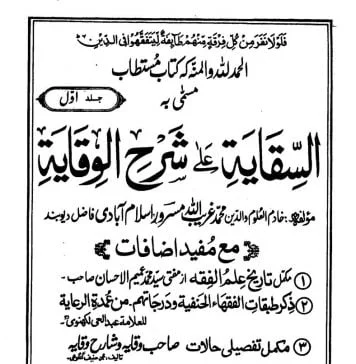 فَلَوْلَا نَفَرَ مِنْ كُلِّ فِرْقَةٍ مِّنْهُمْ طَائِفَةٌ لِّيَتَفَقَّهُوْا فِی الدِّيْنِ
الحمد للہ والمنہ کہ کتاب مُستطاب
مسمّٰی بہ
جلد اوّل
السِّقَايَة عَلٰی شَرحِ الوِقَايَة
مؤلفہ: خادم العلوم والدین محمد غریب اللہ مسرور اسلام آبادی فاضل دیوبند
مع مفید اضافات
① مکمل تاریخ علم الفقہ از مفتی سید محمد عمیم الاحسان صاحب۔
② ذکر طبقات الفقہاء الحنفیۃ ودرجاتھم۔ من عمدۃ الرعایۃ
للعلامۃ عبد الحی لکھنوی
③ مکمل تفصیلی حالات صاحب وقایہ وشارح وقایہ